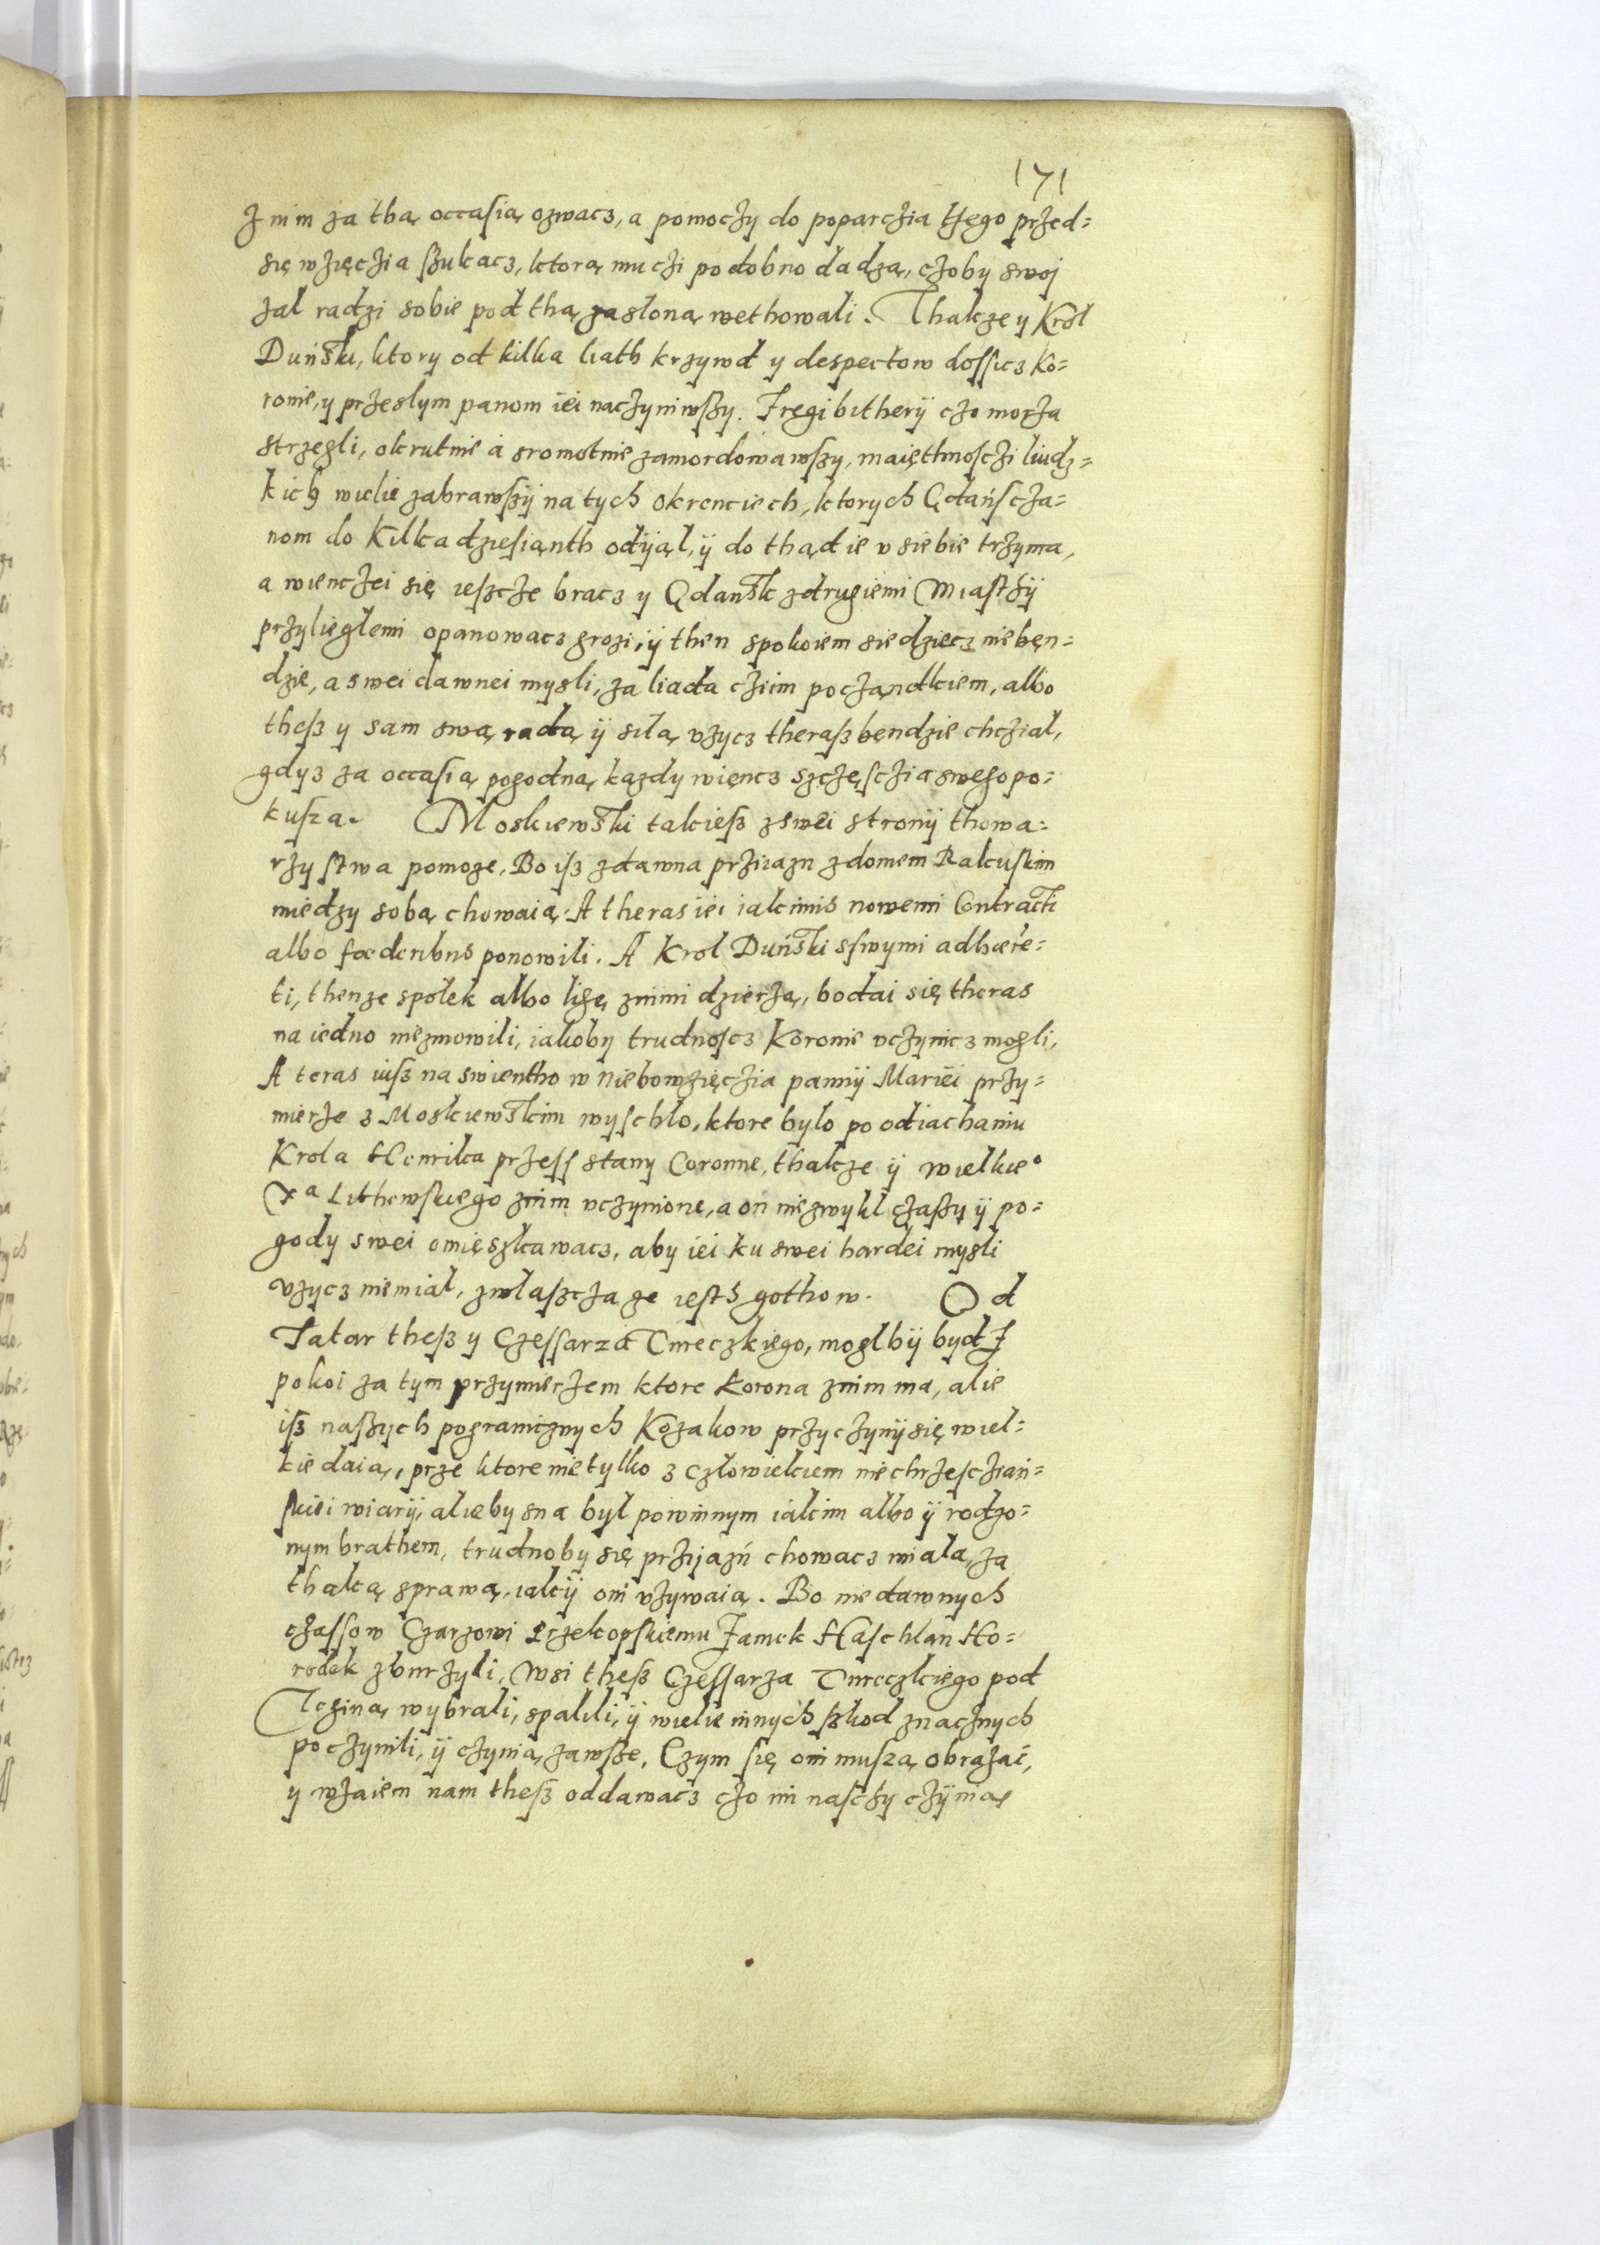 171
Z nim za thą occasią ozwacz, a pomoczy do poparczia tego przed=
się wzięczia szukacz, ktorą mu czi podobno dadzą, czoby swoj
zal radzi sobie pod thą zasloną wethowali. Thakze y Krol
Duński, ktory od kilka liath krzywd y despectow dossicz Ko=
ronie, y przeslym panom iei naczyniwszy. Fregibitherÿ czo morza
strzegli, okrutnie a sromotnie zamordowawszy, maięthnosczi liudz=
kich wielie zabrawszÿ na tych okrenciech, ktorych Gdańscza=
nom do kilkadziesiąnth odÿął, ÿ do thąd ie v siebie trzyma,
a wienczei się ieszcze bracz y Gdańsk z drugiemi Miastzÿ
przylieglemi opanowacz grozi, ÿ then spokoiem siedziecz nie bęn=
dzie, a swei dawnei mysli, za liada cziim począndkiem, albo
thesz y sam swą radą ÿ siłą vzycz therasz bendzie chczial,
gdyz za occasią pogodną kazdy więncz szczęsczia swego po=
kusza. Moskiewski takiesz z swei stronÿ thowa=
rzystwa pomoze. Bo isz zdawna prziiazn z domem Rakuskim
miedzy sobą chowaią. A theras iei iakimis nowemi Contracti
albo fœderibus ponowili. A Krol Duński sswymi adhære=
ti, thenze spolek albo ligę znimi dzierzą, bodai się theras
na iedno nie zmowili, iakoby trudnoscz Koronie vczynicz mogli,
A teras iusz na swientho w niebowzięczia pannÿ Mariei przy=
mierze z Moskiewskim wyschlo, ktore bylo po odiachaniu
Krola Henrika przess stany Coronne, thakze ÿ wielkie°
Xa Lithewskiego znim vczynione, a on nie zwykl czaszu ÿ po=
gody swei omięszkawacz, aby iei ku swei hardei mysli
vzycz nie mial, zwlaszcza ze iesth gothow. Od
Tatar thesz y Czessarza Tureczkiego, moglbÿ bydz
pokoi za tym przymierzem ktore korona znim ma, alie
isz naszych pogranicznych Kozakow przyczynÿ się wiel=
kie daią, prze ktore nie tylko z człowiekiem niechrzesczian=
skiei wiarÿ, alieby sna był powinnym iakim albo ÿ rodzo=
nym brathem, trudnoby się przijaźń chowacz miala, za
thaką sprawą, iakiÿ oni vzywaią. Bo niedawnych
czassow Czarzowi przekopskiemu Zamek Haschlan Ho=
rodek zburzyli, Wsi thesz Czessarza Tureczkiego pod
Teginą wybrali, spalili, ÿ wielie innych szkod znacznych
poczynili, ÿ czynią zawsze. Czym się oni muszą obrazać,
y wzaiem nam thesz oddawacz czo im nasczy czÿnią